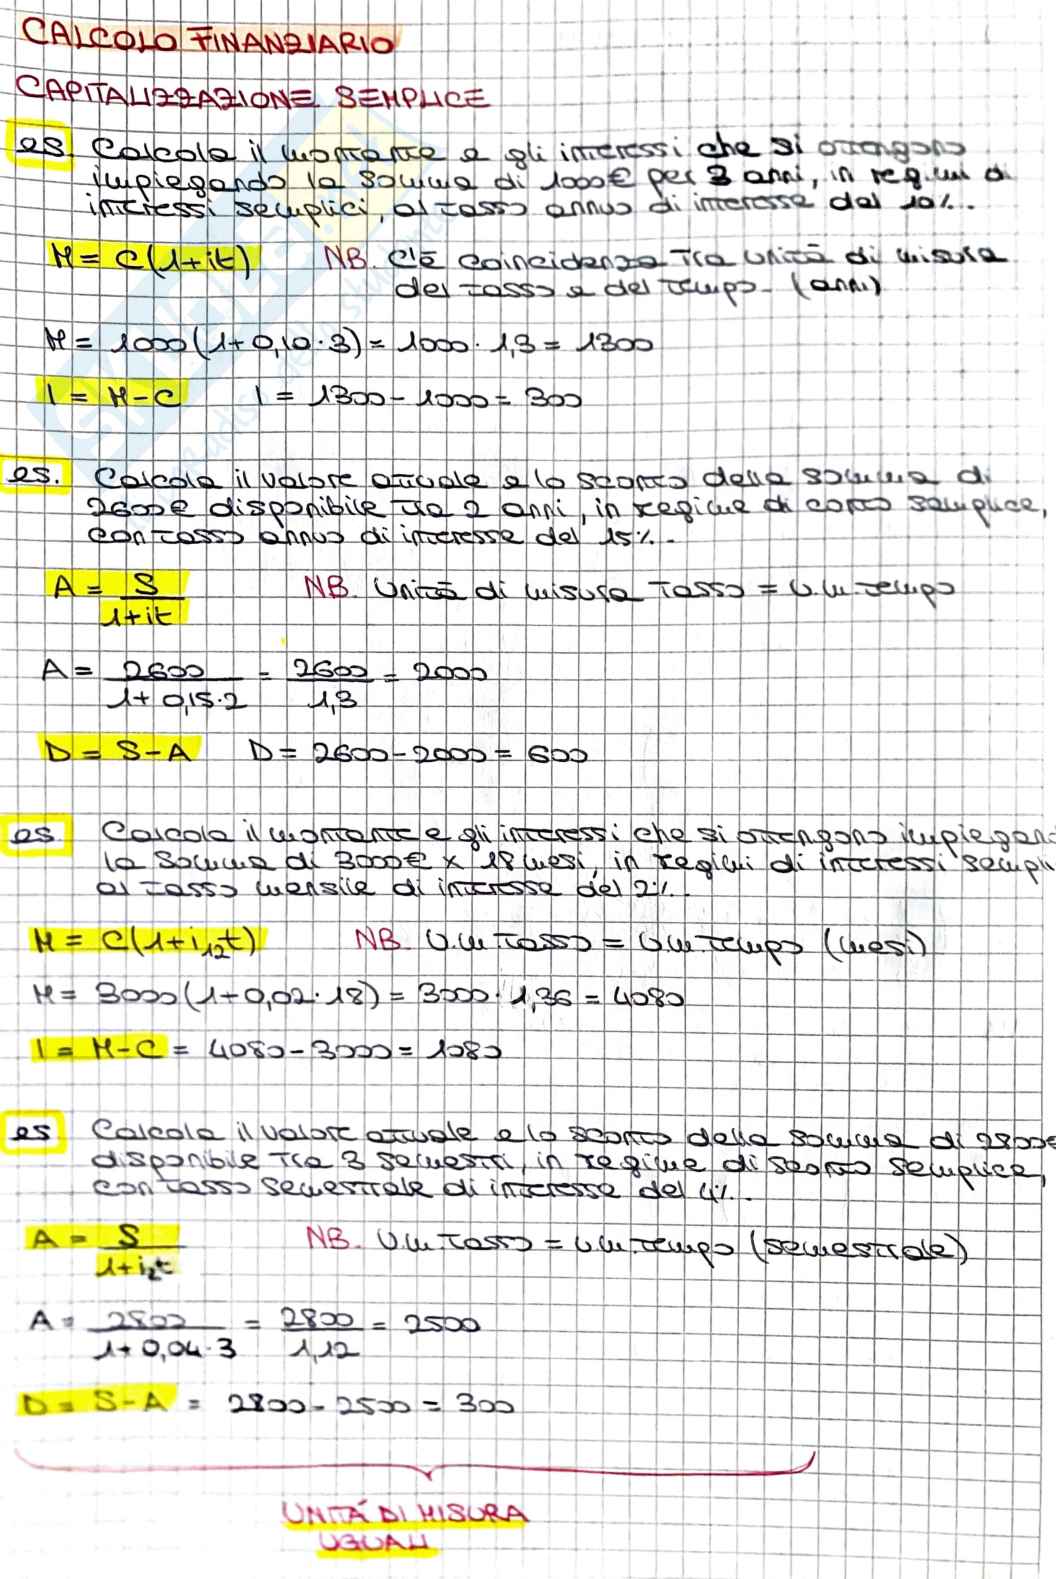 CALCOLO FINANZIARIO
CAPITALIZZAZIONE SEMPLICE
es. Calcola il montante e gli interessi che si ottengono
impiegando la somma di 1000€ per 3 anni, in regimi di
interessi semplici, al tasso annuo di interesse del 10%.
M = C(1+it) NB. C'è coincidenza tra unità di misura
del tasso e del tempo. (anni)
M = 1000(1+0,10·3) = 1000·1,3 = 1300
I = M-C I = 1300-1000 = 300
es. Calcola il valore attuale e lo sconto della somma di
2600€ disponibile tra 2 anni, in regime di conto semplice,
con tasso annuo di interesse del 15%.
A = S NB. Unità di misura tasso = u.m. tempo
1+it
A = 2600 = 2600 = 2000
1+0,15·2 1,3
D = S-A D = 2600-2000 = 600
es. Calcola il montante e gli interessi che si ottengono impiegan
la somma di 3000€ x 18 mesi, in regimi di interessi sempli
al tasso mensile di interesse del 2%.
M = C(1+i₁₂t) NB. U.m tasso = u.m. tempo (mesi)
M = 3000(1+0,02·18) = 3000·1,36 = 4080
I = M-C = 4080-3000 = 1080
es Calcola il valore attuale e lo sconto della somma di 2800€
disponibile tra 3 semestri, in regime di sconto semplice,
con tasso semestrale di interesse del 4%.
A = S NB. U.m. tasso = u.m. tempo (semestrale)
1+i₂t
A = 2800 = 2800 = 2500
1+0,04·3 1,12
D = S-A = 2800-2500 = 300
UNITÁ DI MISURA
UGUALI